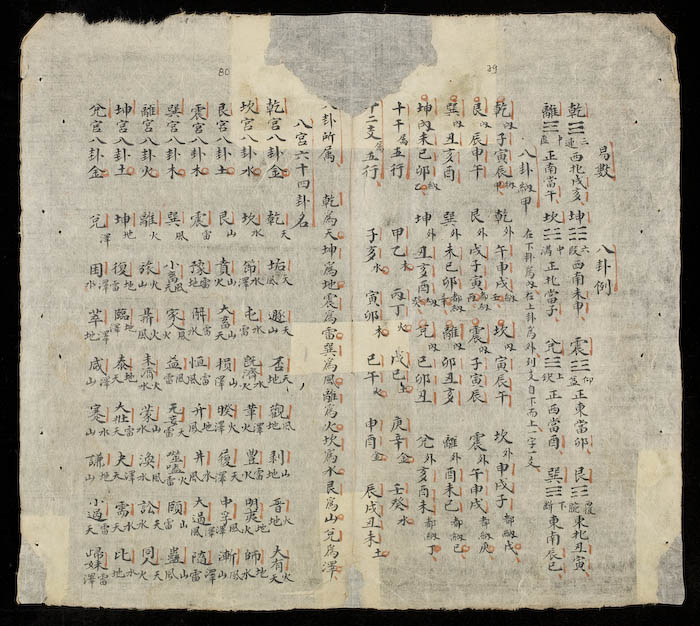 易數 八卦例
乾☰三連西北戌亥 坤☷六段西南未申 震☳仰盂正東當卯 艮☶覆碗東北丑寅
離☲中虛正南當午 坎☵中滿正北當子 兌☱上缺正西當酉 巽☴下斷東南辰巳
八卦納甲 在下卦為內在上卦為外列支自下而上一字一支
乾內子寅辰都納甲 乾外午申戌都納壬 坎內寅辰午 坎外申戌子都納戊
艮內辰申午 艮外戌子寅都納丙 震內子寅辰 震外午申戌都納庚
巽內丑亥酉 巽外未巳卯都納辛 離內卯丑亥 離外酉未巳都納己
坤內未巳卯都納乙 坤外丑亥酉都納癸 兌內巳卯丑 兌外亥酉未都納丁
十干屬五行 甲乙木 丙丁火 戊己土 庚辛金 壬癸水
十二支屬五行 子亥水 寅卯木 巳午火 申酉金 辰戌丑未土
八卦所屬 乾為天坤為地震為雷巽為風離為火坎為水艮為山兌為澤
八宮六十四卦名
乾宮八卦金 乾天 姤天風 遯天山 否天地 觀風地 剝山地 晉火地 大有火天
坎宮八卦水 坎水 節水澤 屯水雷 既濟水火 革澤火 豐雷火 明夷地火 師地水
艮宮八卦土 艮山 賁山火 大畜山天 損山澤 睽火澤 履天澤 中孚風澤 漸風山
震宮八卦木 震雷 豫雷地 解雷水 恒雷風 升地風 井水風 大過澤風 隨澤雷
巽宮八卦木 巽風 小畜風天 家人風火 益風雷 无妄天雷 噬嗑火雷 頤山雷 蠱山風
離宮八卦火 離火 旅火山 鼎火風 未濟火水 蒙山水 渙風水 訟天水 同人天火
坤宮八卦土 坤地 復地雷 臨地澤 泰地天 大壯雷天 夬澤天 需水天 比水地
兌宮八卦金 兌澤 困澤水 萃澤地 咸澤山 蹇水山 謙地山 小過雷山 歸妹雷澤